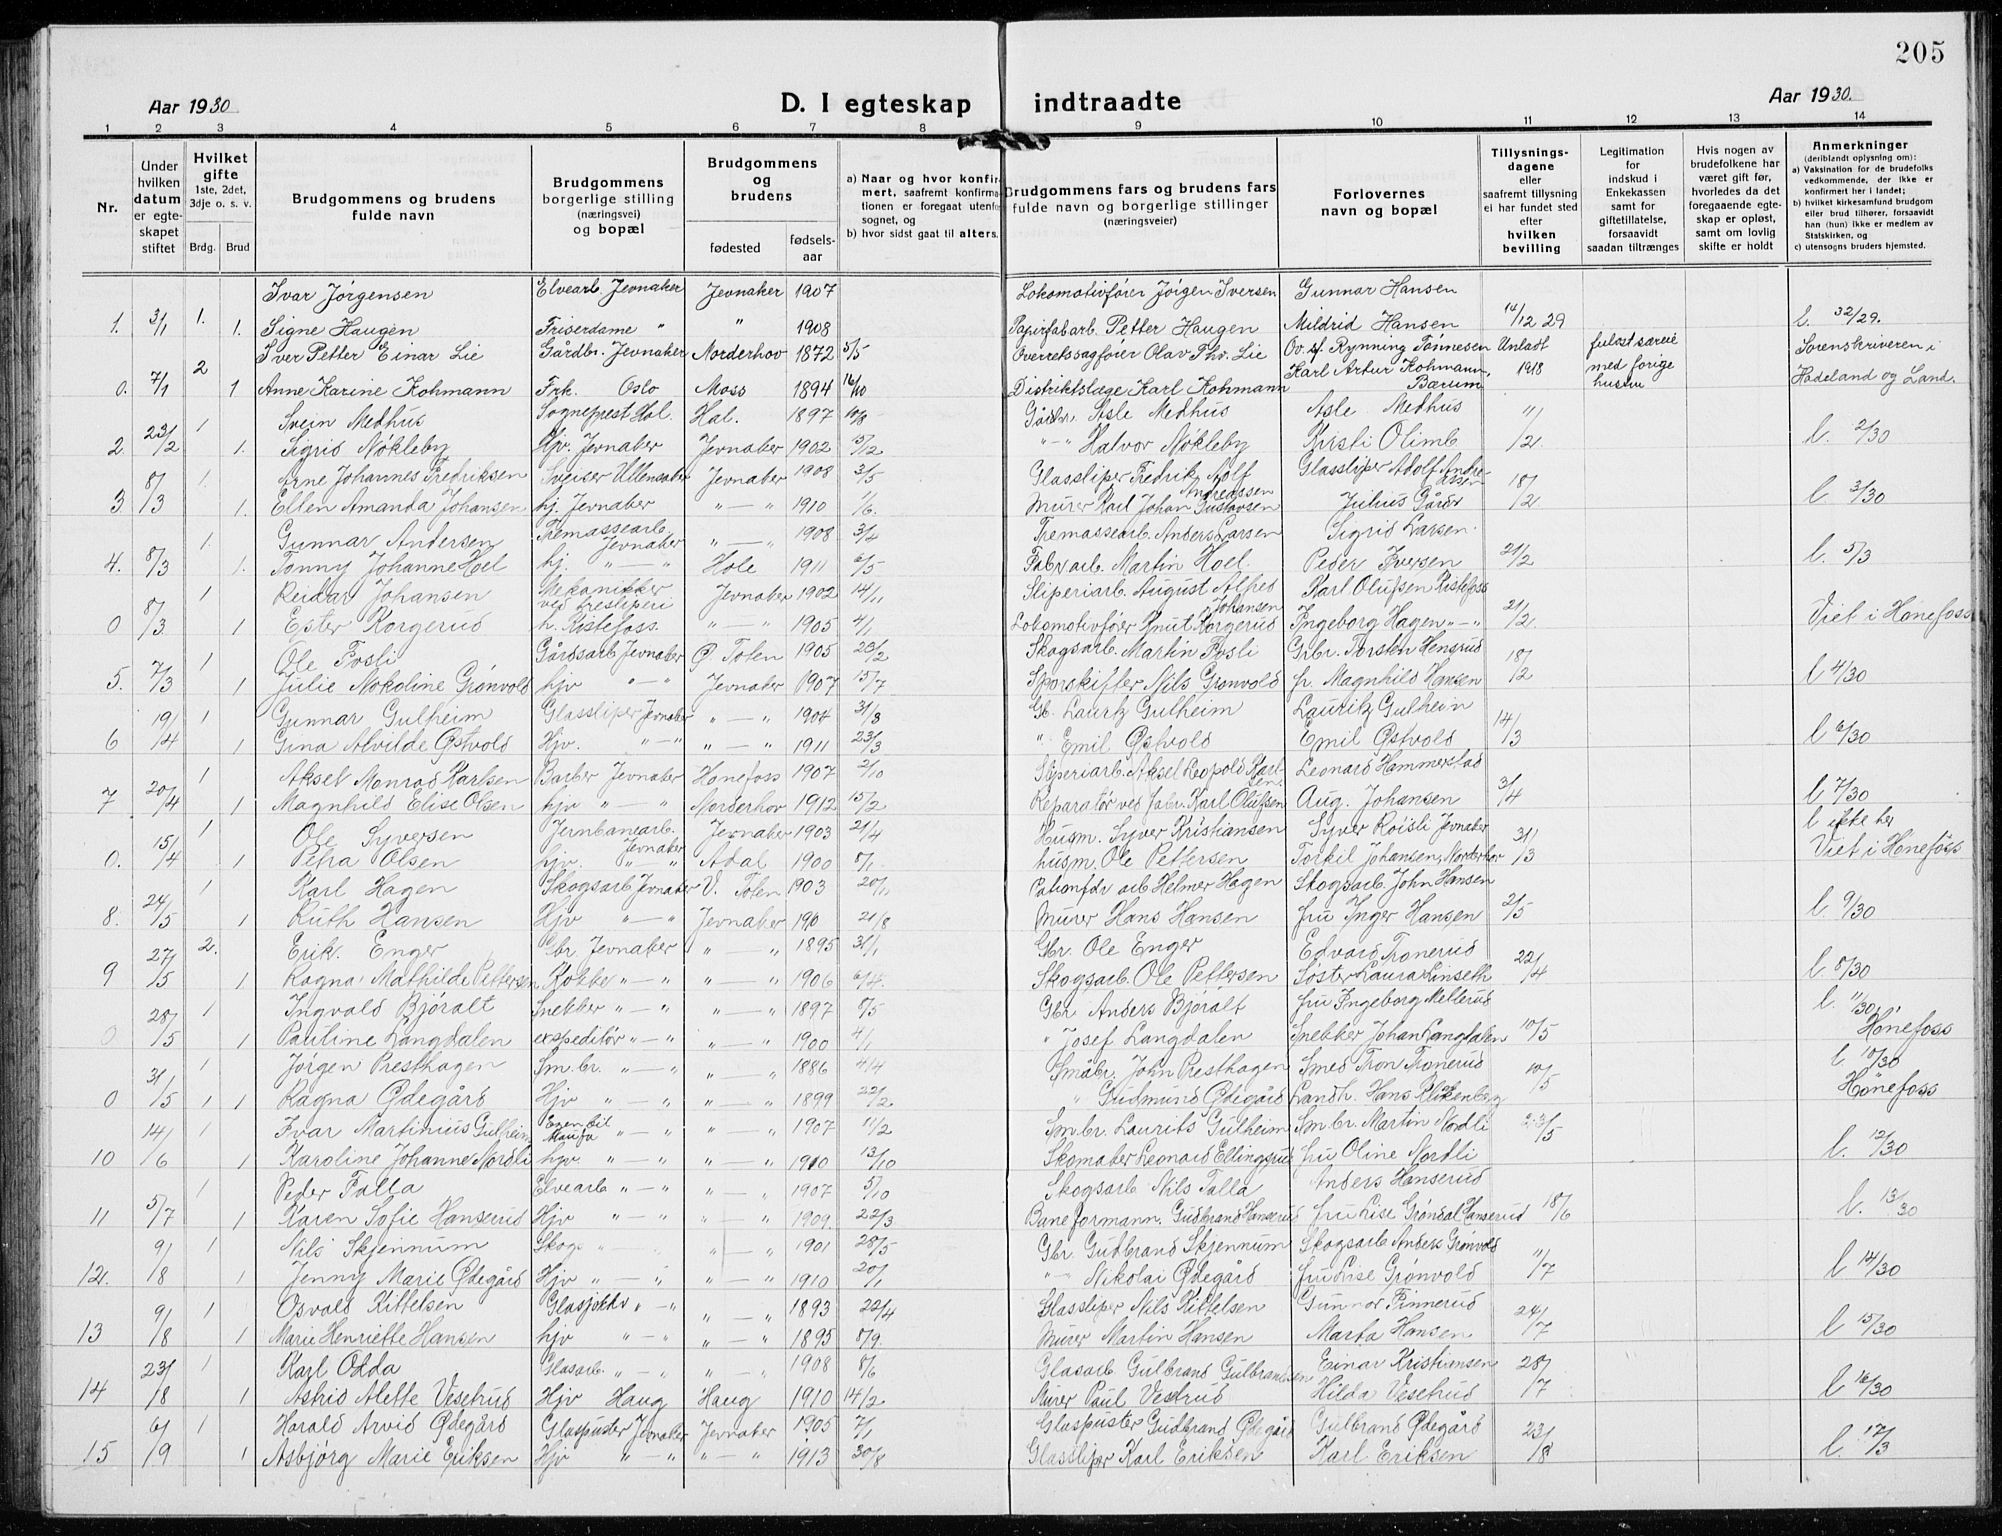 205
Aar 1930 D. I egteskap indtraadte Aar 1930.
1 2 3 4 5 6 7 8 9 10 11 12 13 14
Nr.
Under hvilken datum er egteskapet stiftet
Hvilket gifte 1ste, 2det, 3dje o. s. v.
Brdg. Brud
Brudgommens og brudens fulde navn
Brudgommens borgerlige stilling (næringsvei) og bopæl
Brudgommens og brudens
fødested fødselsaar
a) Naar og hvor konfirmert, saafremt konfirmationen er foregaat utenfor sognet, og
b) hvor sidst gaat til alters.
Brudgommens fars og brudens fars fulde navn og borgerlige stillinger (næringsveier)
Forlovernes navn og bopæl
Tillysningsdagene eller saafremt tillysning ei har fundet sted efter hvilken bevilling
Legitimation for indskud i Enkekassen samt for giftetillatelse, forsaavidt saadan tiltrænges
Hvis nogen av brudefolkene har været gift før, hvorledes da det foregaaende egteskap er opløst, samt om lovlig skifte er holdt
Anmerkninger (deriblandt oplysning om):
a) Vaksination for de brudefolks vedkommende, der ikke er konfirmert her i landet;
b) hvilket kirkesamfund brudgom eller brud tilhører, forsaavidt han (hun) ikke er medlem av Statskirken, og
c) utensogns bruders hjemsted.
Ivar Jørgensen Elvearb. Jevnaker Jevnaker 1907 Lokomotivfører Jørgen Iversen Gunnar Hansen
1. 3/1 1. 1. Signe Haugen Friserdame " " 1908 Papirfabarb. Petter Haugen Mildrid Hansen 14/12 29 l. 32/29.
2 Iver Petter Einar Lie Gårdbr. Jevnaker Norderhov 1872 5/5 Overretssagfører Olav Thv. Lie Ov. sf. Rynning Tønnesen Unladt fulgt særeie Sorenskriveren i
0. 7/1 1 Anne Karine Kohmann Frk. Oslo Moss 1894 16/10 Distriktslæge Karl Kohmann Karl Artur Kohmann, Bærum 1918 med forige hustru Hadeland og Land.
1 Svein Medhus Sogneprest Hol. Hol. 1897 10/8 Gårdbr. Asle Medhus Asle Medhus
2. 23/2 1. Sigrid Nøkleby Hjv. Jevnaker Jevnaker 1902 15/12 " - " Halvor Nøkleby Kirsti Olimb 11/2 l. 2/30
1. Arne Johannes Fredriksen Sveiser Ullensaker Jevnaker 1908 3/5 Glassliper Fredrik Adolf Andreassen Glassliper Adolf Andreassen
3 8/3 1. Ellen Amanda Johansen hj. Jevnaker " — " 1910 1/6. Murer Karl Johan Gustavsen Julius Gårder 18/2 l 3/30
1. Gunnar Andersen Tremassearb. Jevnaker " — " 1908 3/4 Tremassearb. Anders Larsen Sigrid Larsen.
4. 8/3 1. Tonny Johanne Hoel hj. " — " Hole 1911 6/5 Fabr arb. Martin Hoel. Peder Iversen 21/2 l. 5/3
1 Reidar Johansen Mekanikker ved tresliperi Jevnaker 1902 14/11 Sliperiarb. August Alfred Johansen Karl Olufsen Kistefoss
0 8/3 1 Ester Korgerud h. Kistefoss. " — " 1905 4/1 Lokomotivfører Knut Korgerud Ingeborg Hagen " - " 21/2 Viet i Hønefoss
1 Ole Fosli Gårdsarb Jevnaker Ø. Toten 1905 23/2 Skogsarb. Martin Fosli Grbr. Torsten Hensrud
5. 7/3 1 Julie Nokoline Grønvold hjv " — " Jevnaker 1907 15/7 Sporskifter Nils Grønvold fr. Magnhild Hansen 18/2 l 4/30
1 Gunnar Gulheim Glassliper Jevnaker " — " 1904 31/3 Gb. Lauritz Gulheim Lauritz Gulheim
6 19/4 1 Gina Alvilde Østvold Hjv. " — " " — " 1911 23/3 " Emil Østvold Emil Østvold 14/3 l 6/30
1 Aksel Monrad Karlsen Barber Jevnaker Hønefoss 1907 2/10 Sliperiarb. Aksel Leopold Karlsen Leonard Hammerstad
7 20/4 1 Magnhild Elise Olsen hjv " — " Norderhov 1912 15/2 Reparatør ved fabr. Karl Olufsen Aug. Johansen 3/4 l 7/30
1 Ole Syversen Jernbanearb. Jevnaker Jevnaker 1903 21/4 Husm. Syver Kristiansen Syver Roisli Jevnaker l ikke her
0. 15/4 1 Petra Olsen hjv. " — " Ådal 1900 8/1 husm. Ole Pettersen Torkil Johansen, Norderhov 31/3 Viet i Hønefoss
1 Karl Hagen Skogsarb Jevnaker V. Toten 1903 20/11 arb Helmer Hagen Skogsarb. John Hansen
8. 24/5 1 Ruth Hansen Hjv " — " Jevnaker 190 21/8 Murer Hans Hansen fru Inger Hansen 2/5 l. 9/30
2. Erik. Enger Gbr Jevnaker " — " 1895 31/1 Gbr. Ole Enger Edvard Tronerud
9 27/5 1 Ragna Mathilde Pettersen Kokke " — " " — " 1906 6/4. Skogsarb. Ole Pettersen Søster Laura Linseth 22/4 l. 8/30
1 Ingvald Bjøralt Snekker " — " " — " 1897 8/5 Gbr Anders Bjøralt fru Ingeborg Mellerud l. 11/30
0 28/5 1 Pauline Langdalen ekspeditør " — " " — " 1900 4/1 " Josef Langdalen Snekker Johan Langdalen 10/5 Hønefoss
1 Jørgen Presthagen Sm.br. " — " " — " 1886 4/4 Småbr. John Presthagen Smed Tron Tronerud l 10/30
0 31/5 1 1 Ragna Ødegård Hjv " — " " — " 1899 22/2 " Gudmund Ødegård Landh. Hans Blikenberg 10/5 Hønefoss
1 Ivar Martinius Gulheim " — " " — " 1907 11/2 Sm br. Laurits Gulheim Sm br. Martin Nordli
10 14/6 1 Karoline Johanne Nordli hjv " — " " — " 1910 13/10 Skomaker Leonard Ellingsrud fru Oline Nordli 23/5 l. 12/30
1 Peder Falla Elvearb " — " " — " 1907 5/10 Skogsarb Nils Falla Anders Hanserud
11 5/7 1 Karen Sofie Hanserud Hjv " — " " — " 1909. 22/3 Baneformann. Gudbrand Hanserud fru Lise Grøndal Hanserud 18/6 l. 13/30
1 Nils Skjennum Skogs " — " " — " 1901 28/5 Gbr. Gudbrand Skjennum Skogsarb Anders Grønvold
12. 9/8 1 Jenny Marie Ødegård Hjv " — " " — " 1910 20/1 " - Nikolai Ødegård fru Lise Grønvold 11/7 l 14/30
1 Osvald Kittelsen " — " " — " 1893 22/4 Glassliper Nils Kittelsen Gunnor Finnerud
13 9/8 1 Marie Henriette Hansen hjv " — " " — " 1895 8/9. Murer Martin Hansen Marta Hansen 24/7 l 15/30
1 Karl Odda Glasarb. " — " " — " 1908 8/6 Glasarb Gulbrand Gulbrandsen Einar Kristiansen
14 23/8 1 Astrid Alette Vesetrud Hjv Haug Haug 1910 14/2 Murer Paul Vestrud Hilda Vesetrud 28/7 l 16/30
1 Harald Arvid Ødegård Glaspuster Jevnaker Jevnaker 1905 7/1 Glaspuster Gudbrand Ødegård Gulbrand Ødegård
15 6/9 1 Asbjørg Marie Eriksen Hjv " — " " — " 1913 30/8 Glassliper Karl Eriksen Karl Eriksen 23/8 l. 17/3